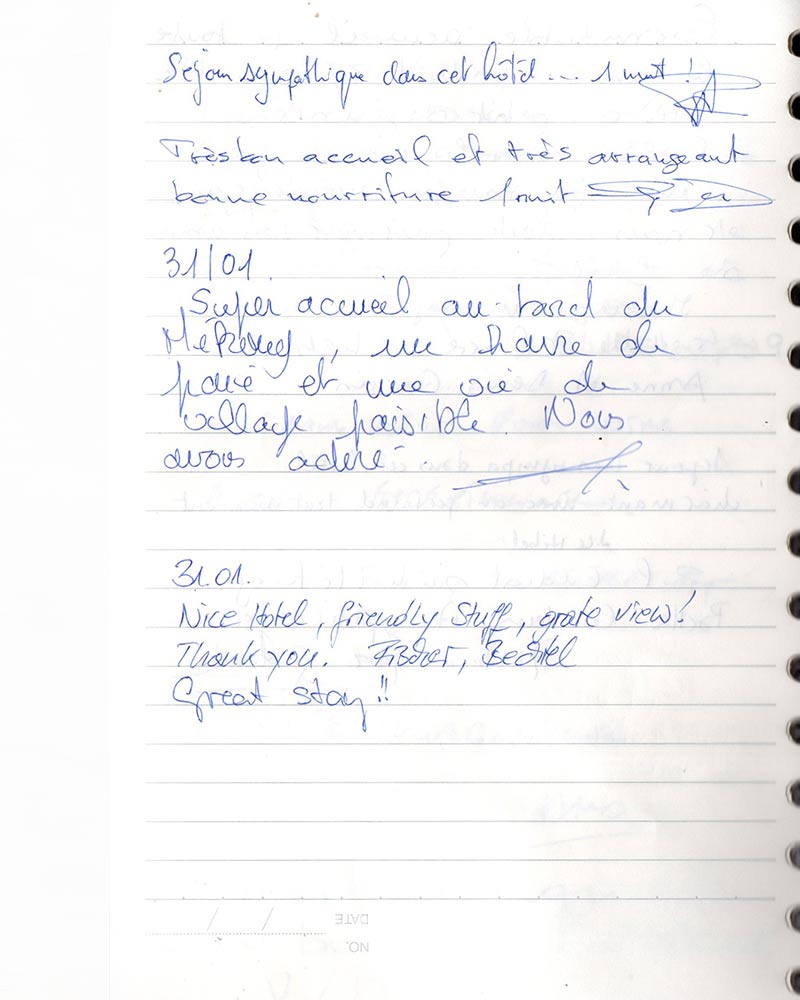 Séjour sympathique dans cet hôtel... 1 nuit!
Très bon accueil et très arrangeant
bonne nourriture 1 nuit
31/01.
Super accueil au bord du
Mékong, un havre de
paix et une vie de
village paisible. Nous
avons adoré.
31.01.
Nice Hotel, friendly Stuff, grate view!
Thank you. Fischer, Bechtel
Great stay!!
DATE / /
NO.